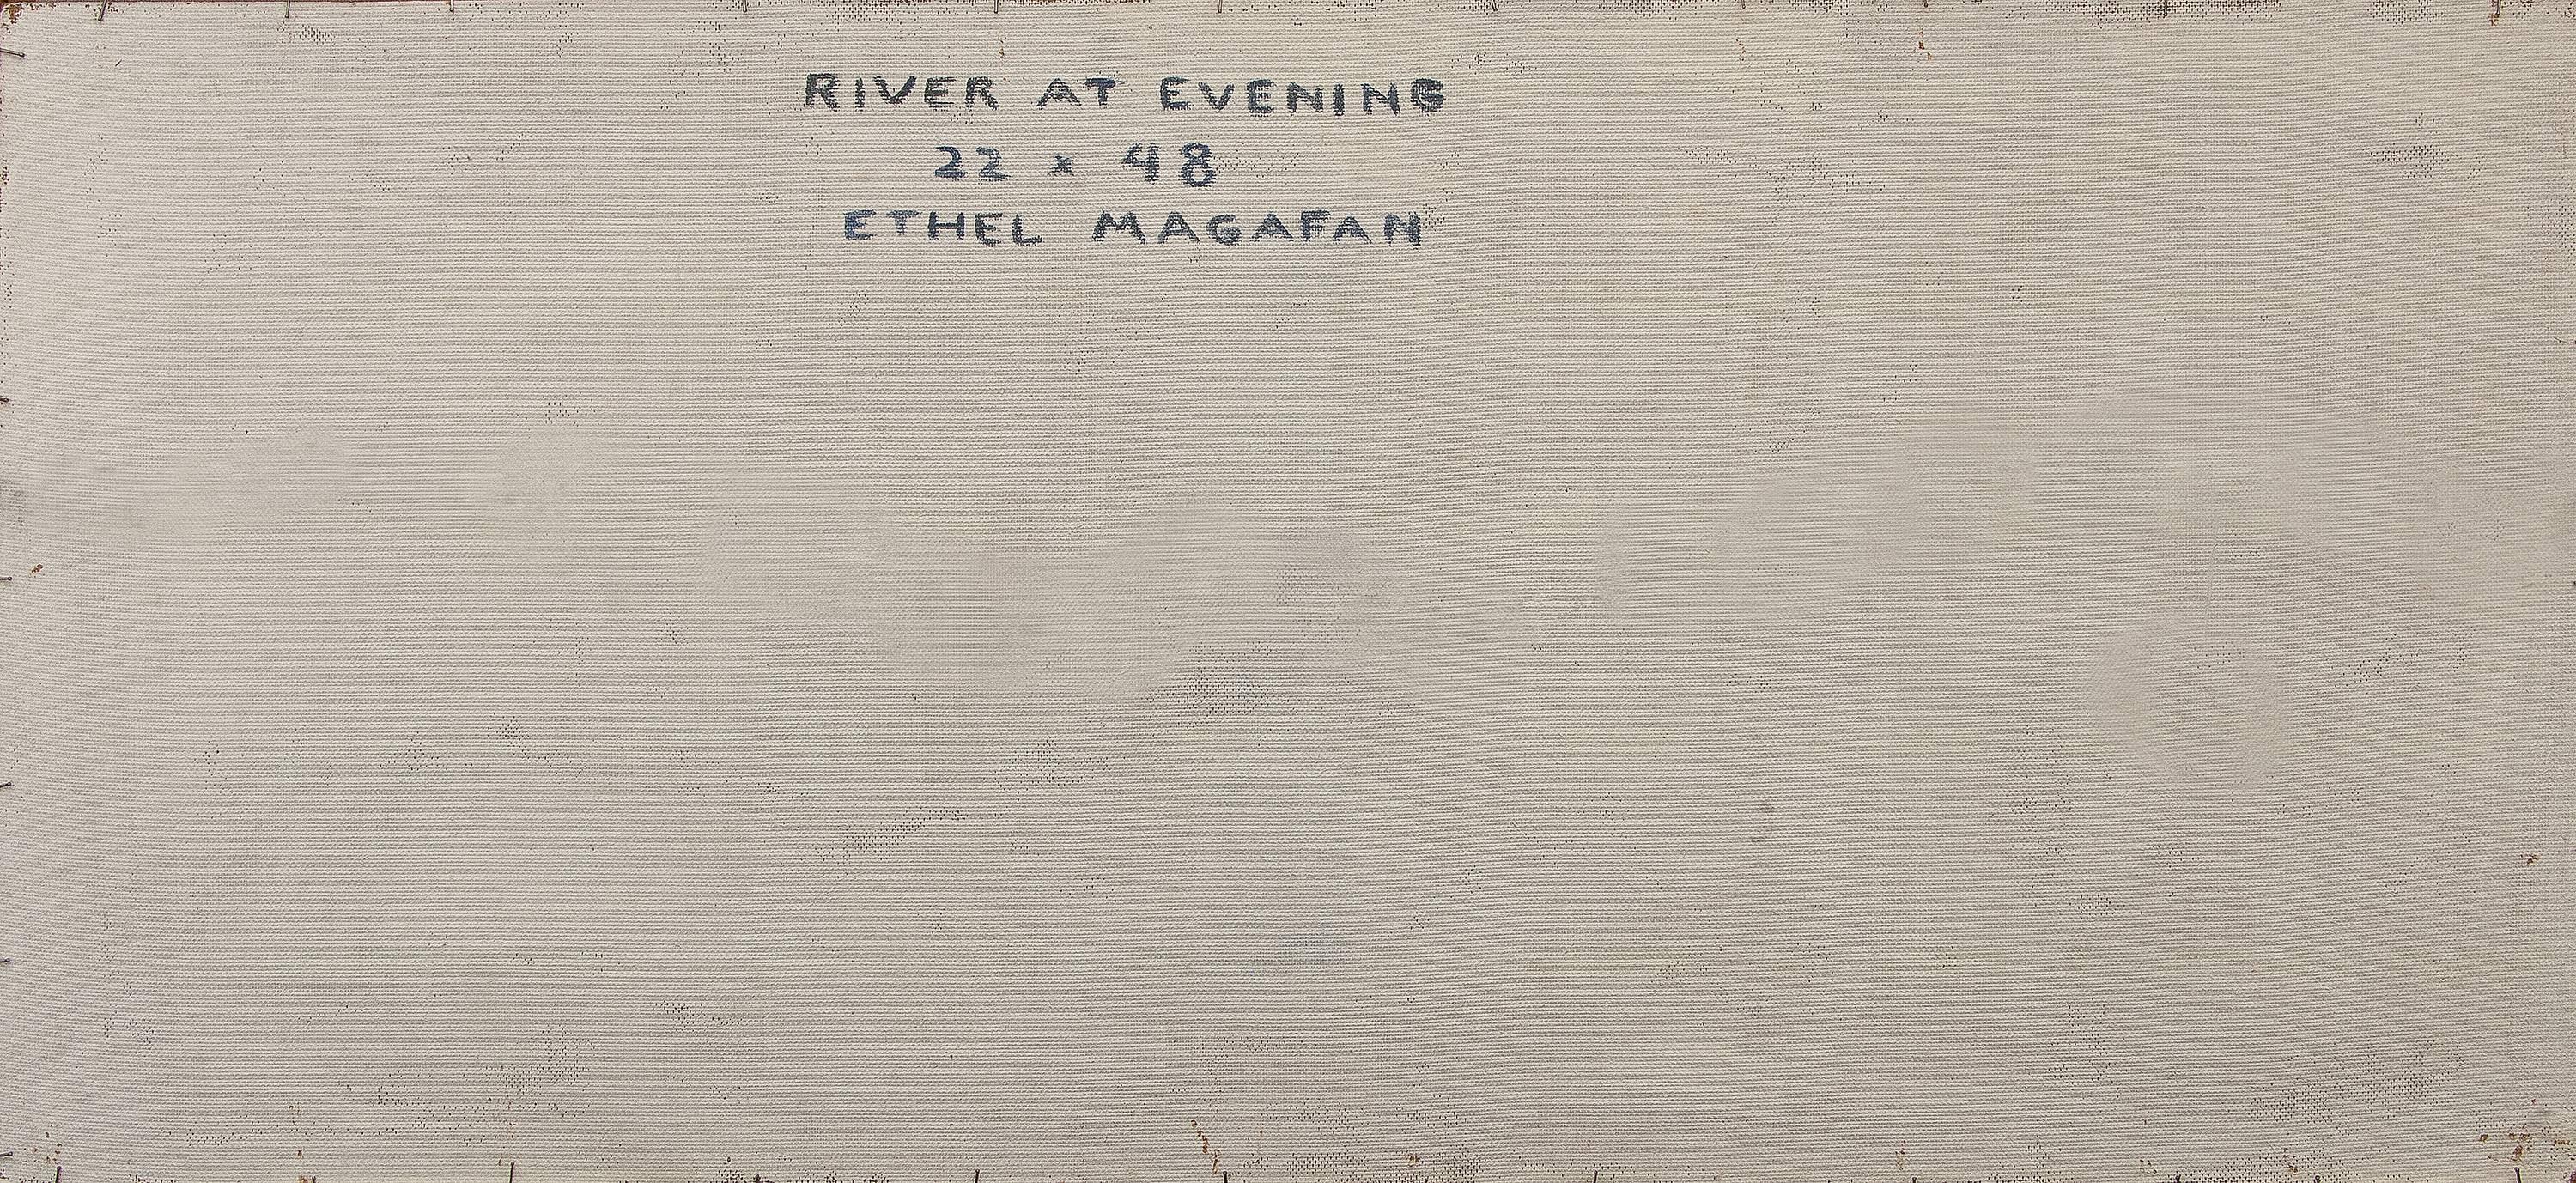 RIVER AT EVENING
22 x 48
ETHEL MAGAFAN